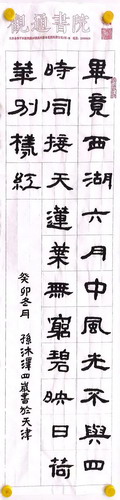 畢竟西湖六月中風光不與四
時同接天蓮葉無窮碧映日荷
華別樣紅
癸卯冬月 孫沐澤四歲書於天津